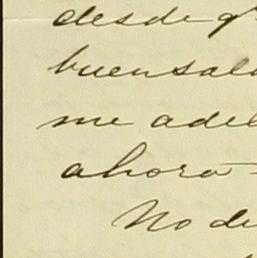 desde q
buen sal
me adel
ahora -
No de